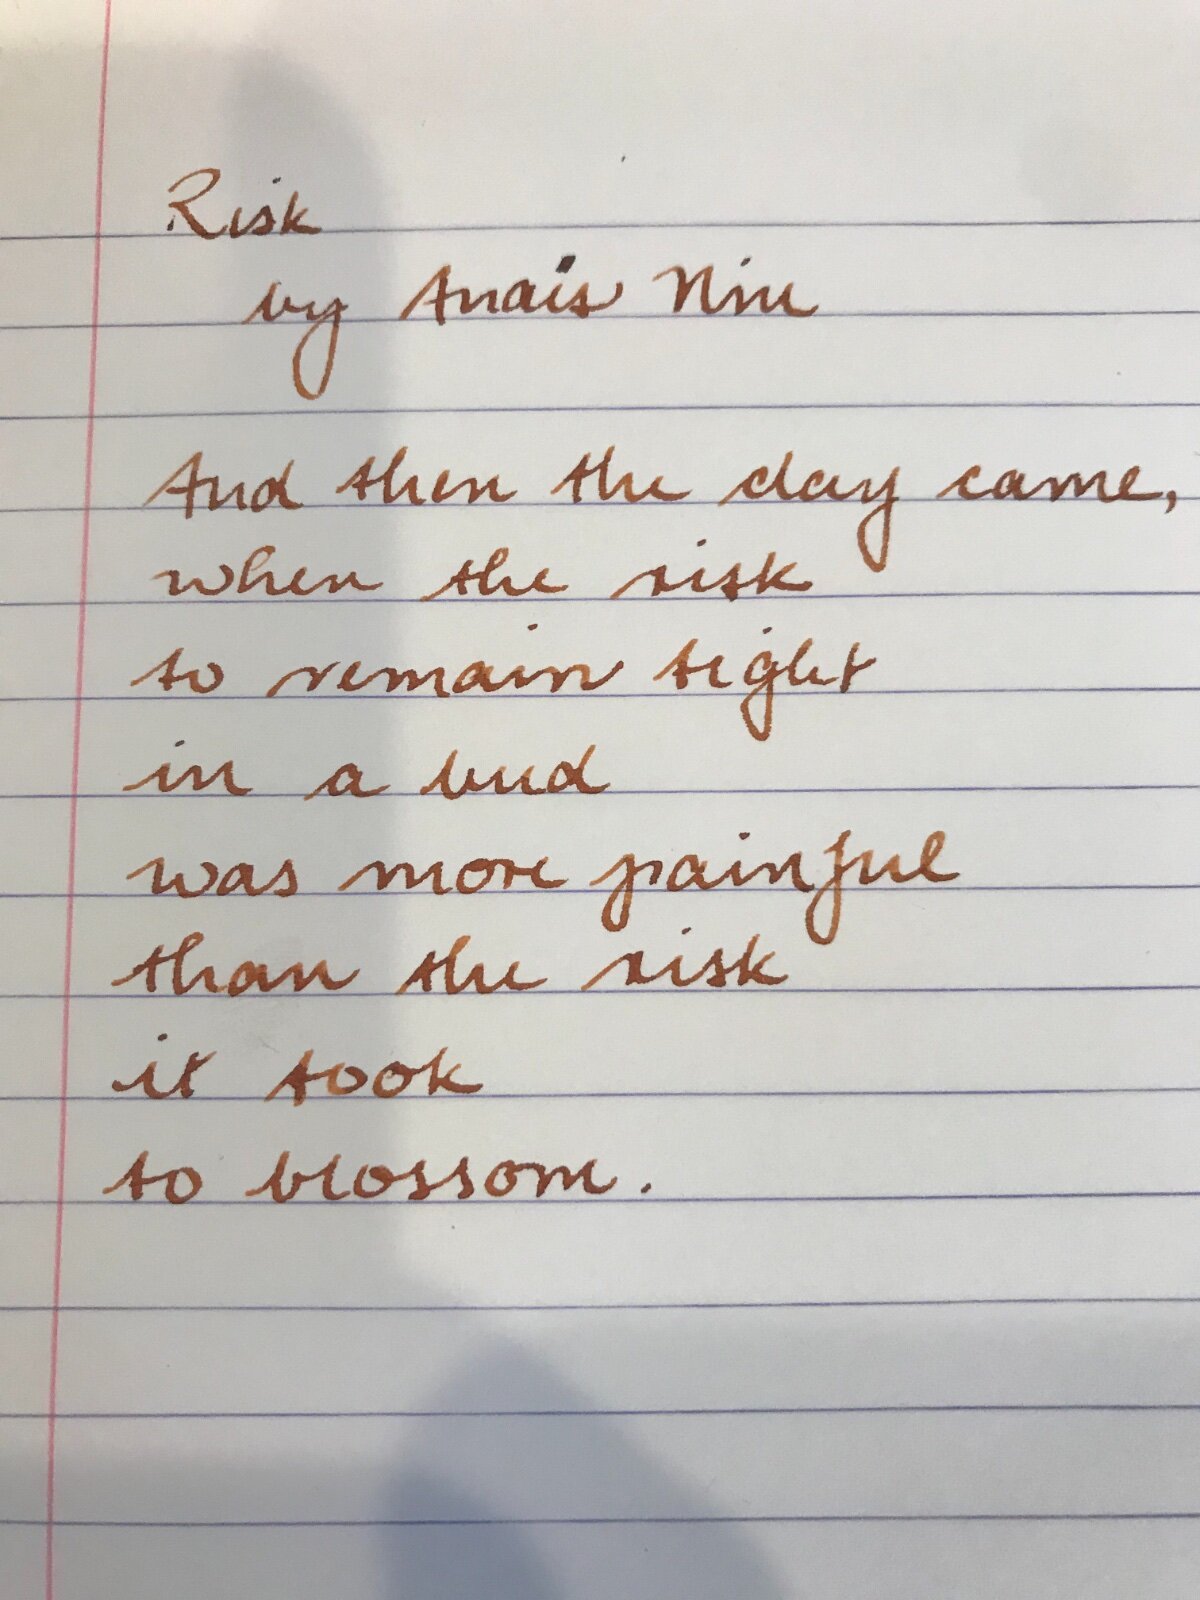 Risk
by Anaïs Nin
And then the day came,
when the risk
to remain tight
in a bud
was more painful
than the risk
it took
to blossom.